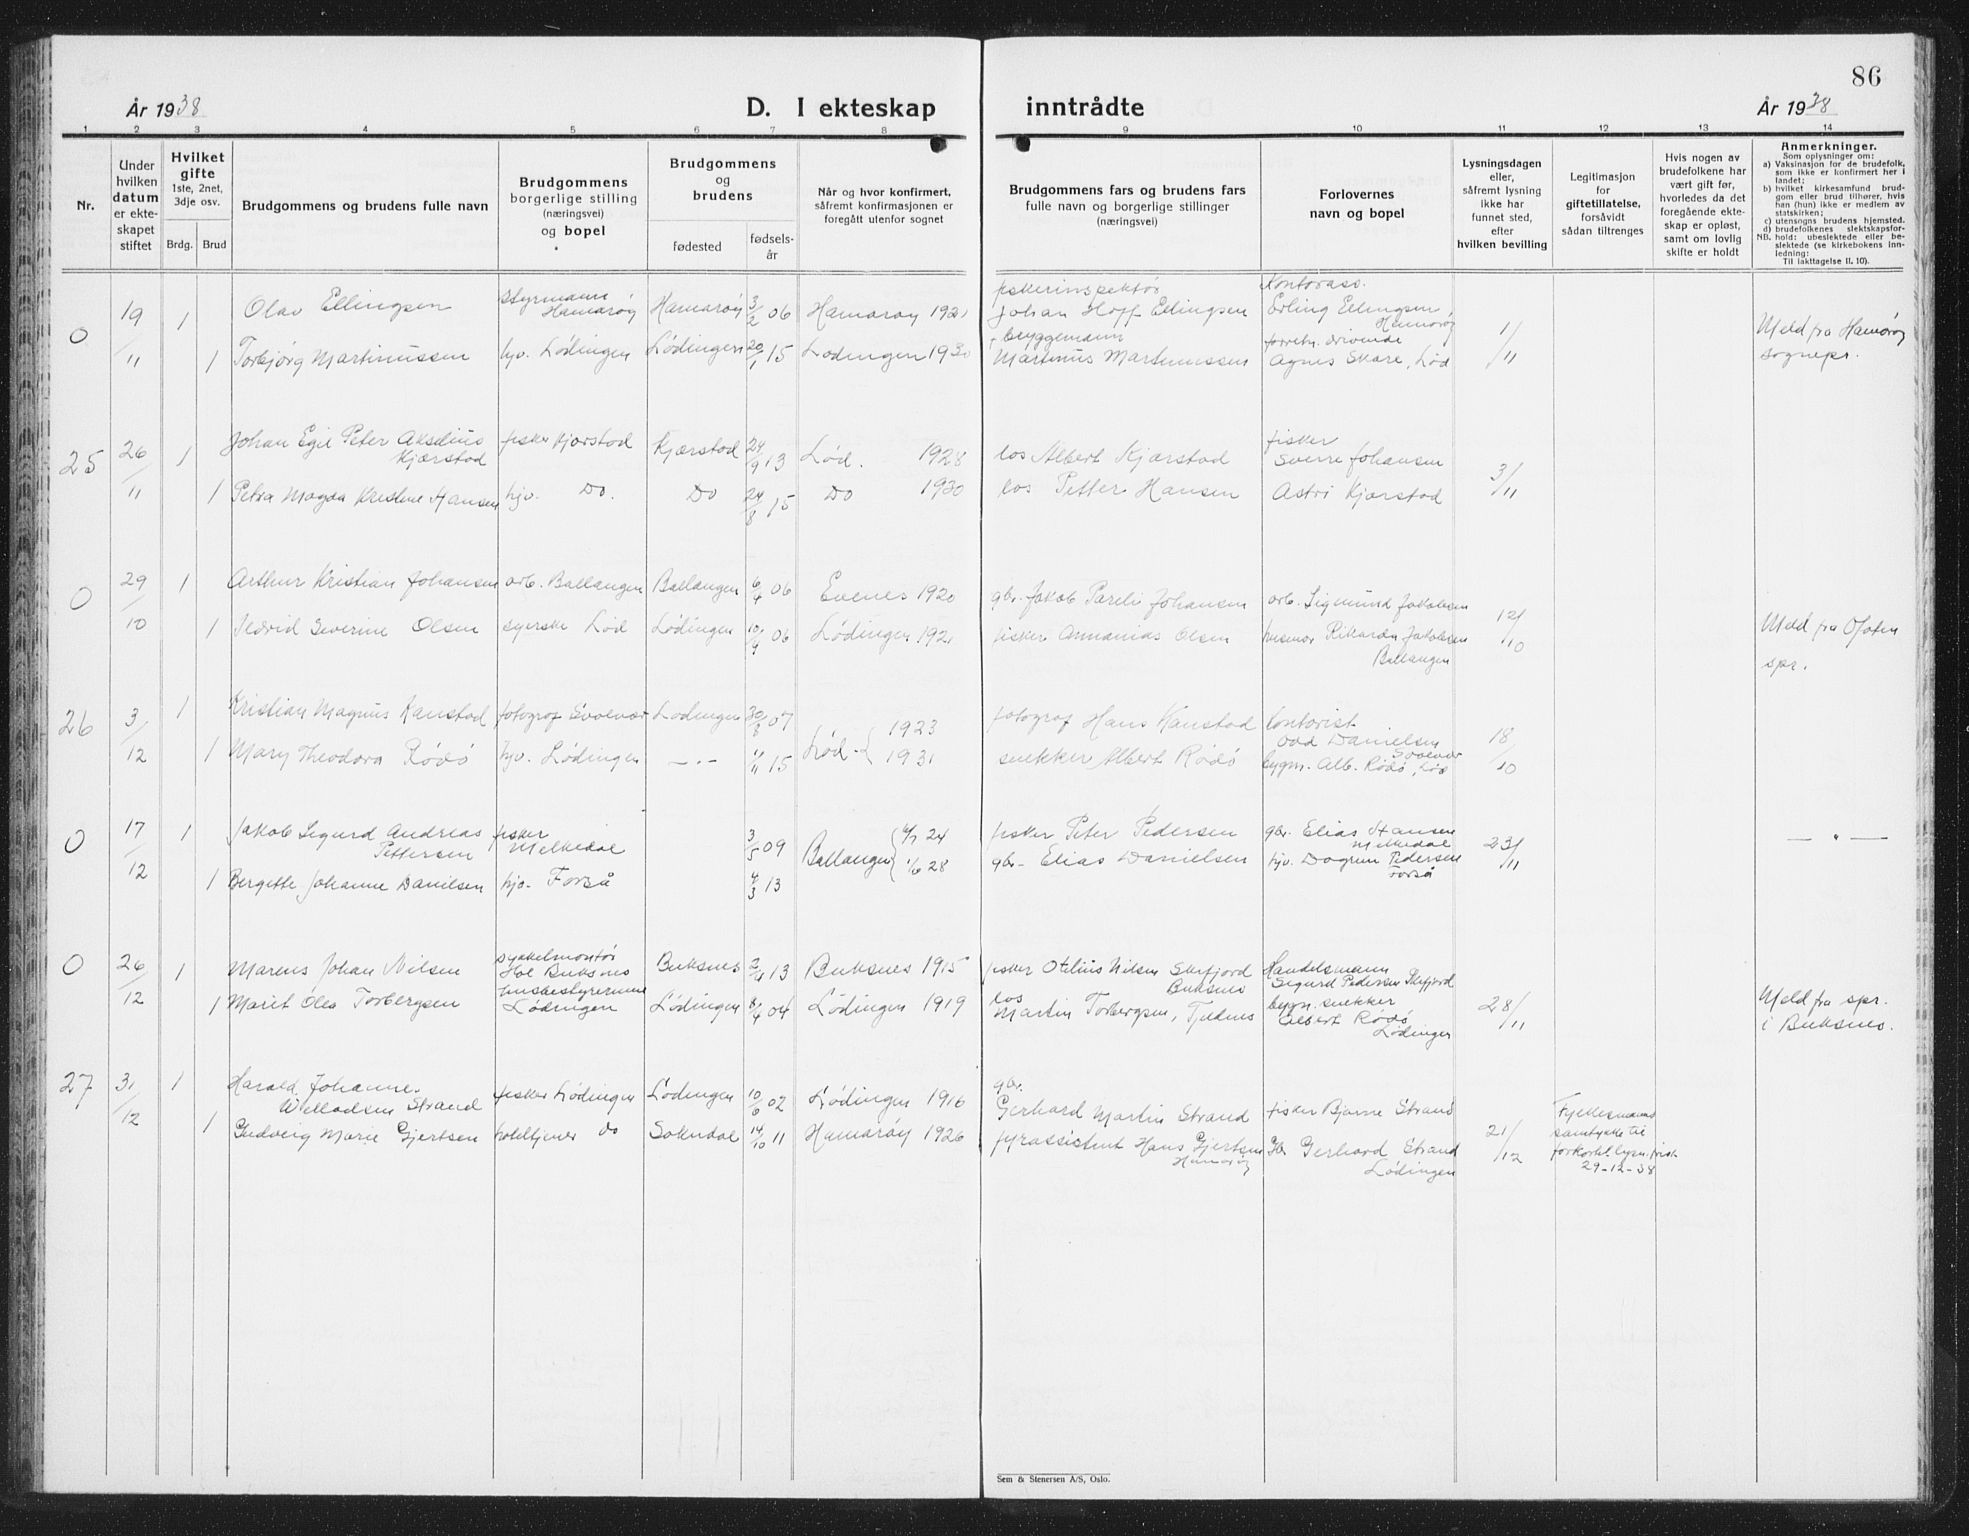 86
År 1938
D. I ekteskap inntrådte
År 1938
1 2 3 4 5 6 7 8 9 10 11 12 13 14
Nr.
Under
hvilken
datum
er ekte-
skapet
stiftet
Hvilket
gifte
1ste, 2net,
3dje osv.
Brdg. Brud
Brudgommens og brudens fulle navn
Brudgommens
borgerlige stilling
(næringsvei)
og bopel
Brudgommens
og
brudens
fødested
fødsels-
år
Når og hvor konfirmert,
såfremt konfirmasjonen er
foregått utenfor sognet
Brudgommens fars og brudens fars
fulle navn og borgerlige stillinger
(næringsvei)
Forlovernes
navn og bopel
Lysningsdagen
eller,
såfremt lysning
ikke har
funnet sted,
efter
hvilken bevilling
Legitimasjon
for
giftetillatelse,
forsåvidt
sådan tiltrenges
Hvis nogen av
brudefolkene har
vært gift før,
hvorledes da det
foregående ekte-
skap er opløst,
samt om lovlig
skifte er holdt
Anmerkninger.
Som oplysninger om:
a) Vaksinasjon for de brudefolk,
som ikke er konfirmert her i
landet;
b) hvilket kirkesamfund brud-
gom eller brud tilhører, hvis
han (hun) ikke er medlem av
statskirken;
c) utensogns brudens hjemsted.
d) brudefolkenes slektskapsfor-
NB. hold: ubeslektede eller be-
slektede (se kirkebokens inn-
ledning:
Til iakttagelse II, 10).
0 19/11 1 Olav Ellingsen styrmann Hamarøy Hamarøy 3/2 06 Hamarøy 1921 fiskerinspektør Johan Hoff Ellingsen Kontorass. Erling Ellingsen, Hamarøy 1/11 Meld fra Hamarøy
1 Torbjørg Martinussen hjv. Lødingen Lødingen 20/1 15 Lødingen 1930 + byggemann Martinus Martinussen forretn. drivende Agnes Skare, Lød sognepr.
25 26/11 1 Johan Egil Peter Akselius Kjærstad fisker Kjærstad Kjærstad 24/9 13 Lød. 1928 los Albert Kjærstad fisker Sverre Johansen 3/11
1 Petra Magda Kristine Hansen hjv. Do. Do 24/8 15 Do 1930 los Petter Hansen Astri Kjærstad
0 29/10 1 Arthur Kristian Johansen arb. Ballangen Ballangen 6/4 06 Evenes 1920 gbr. Jakob Pareli Johansen arb. Sigmund Jakobsen 12/10 Meld fra Ofoten
1 Ildrid Severine Olsen syerske Lød Lødingen 10/9 06 Lødingen 1921 fisker Ormanias Olsen husmor Rikarda Jakobsen Ballangen spr.
26 3/12 1 Kristian Magnus Kanstad fotograf Svolvær Lødingen 30/8 07 Lød. { 1923 fotograf Hans Kanstad kontorist Odd Danielsen Svolvær 18/10
1 Mary Theodora Rödö hjv. Lødingen —.— 11/11 15 1931 snekker Albert Rödö bygm. Alb. Rödö, Lød
0 17/12 1 Jakob Sigurd Andreas Pettersen fisker Melkedal 3/5 09 Ballangen { 6/7 24 fisker Peter Pedersen gbr. Elias Hansen Melkedal 23/11 — " —
1 Bergette Johanne Danilsen hjv. Forså 4/3 13 1/6 28 gbr - Elias Danielsen hjv. Dagrun Pedersen Forså
0 26/12 1 Marens Johan Nilsen sykkelmontør Hol Buksnes Buksnes 2/4 13 Buksnes 1915 fisker Otelius Nilsen Skrfjord Buksnes Handelsmann Sigurd Pedersen Skrfjord 28/11 Meld fra spr.
1 Marit Olea Torbergsen husbestyrerinne Lødingen Lødingen 8/4 04 Lødingen 1919 los Martin Torbergsen, Tjeldnes bygn. snekker Albert Rödö Lødingen i Buksnes.
27 31/12 1 Harald Johannes Willadsen Strand fisker Lødingen Lødingen 10/6 02 Lødingen 1916 gbr. Gerhard Martin Strand fisker Bjarne Strand 21/12 Fylkesmanns samtykke til forkortet lysn. frist 29-12-38
1 Gudveig Marie Gjertsen hoteltjener do Sokndal 14/10 11 Hamarøy 1926 fyrassistent Hans Gjertsen Hamarøy Gbr Gerhard Strand Lødingen
Sem & Stenersen A/S, Oslo.